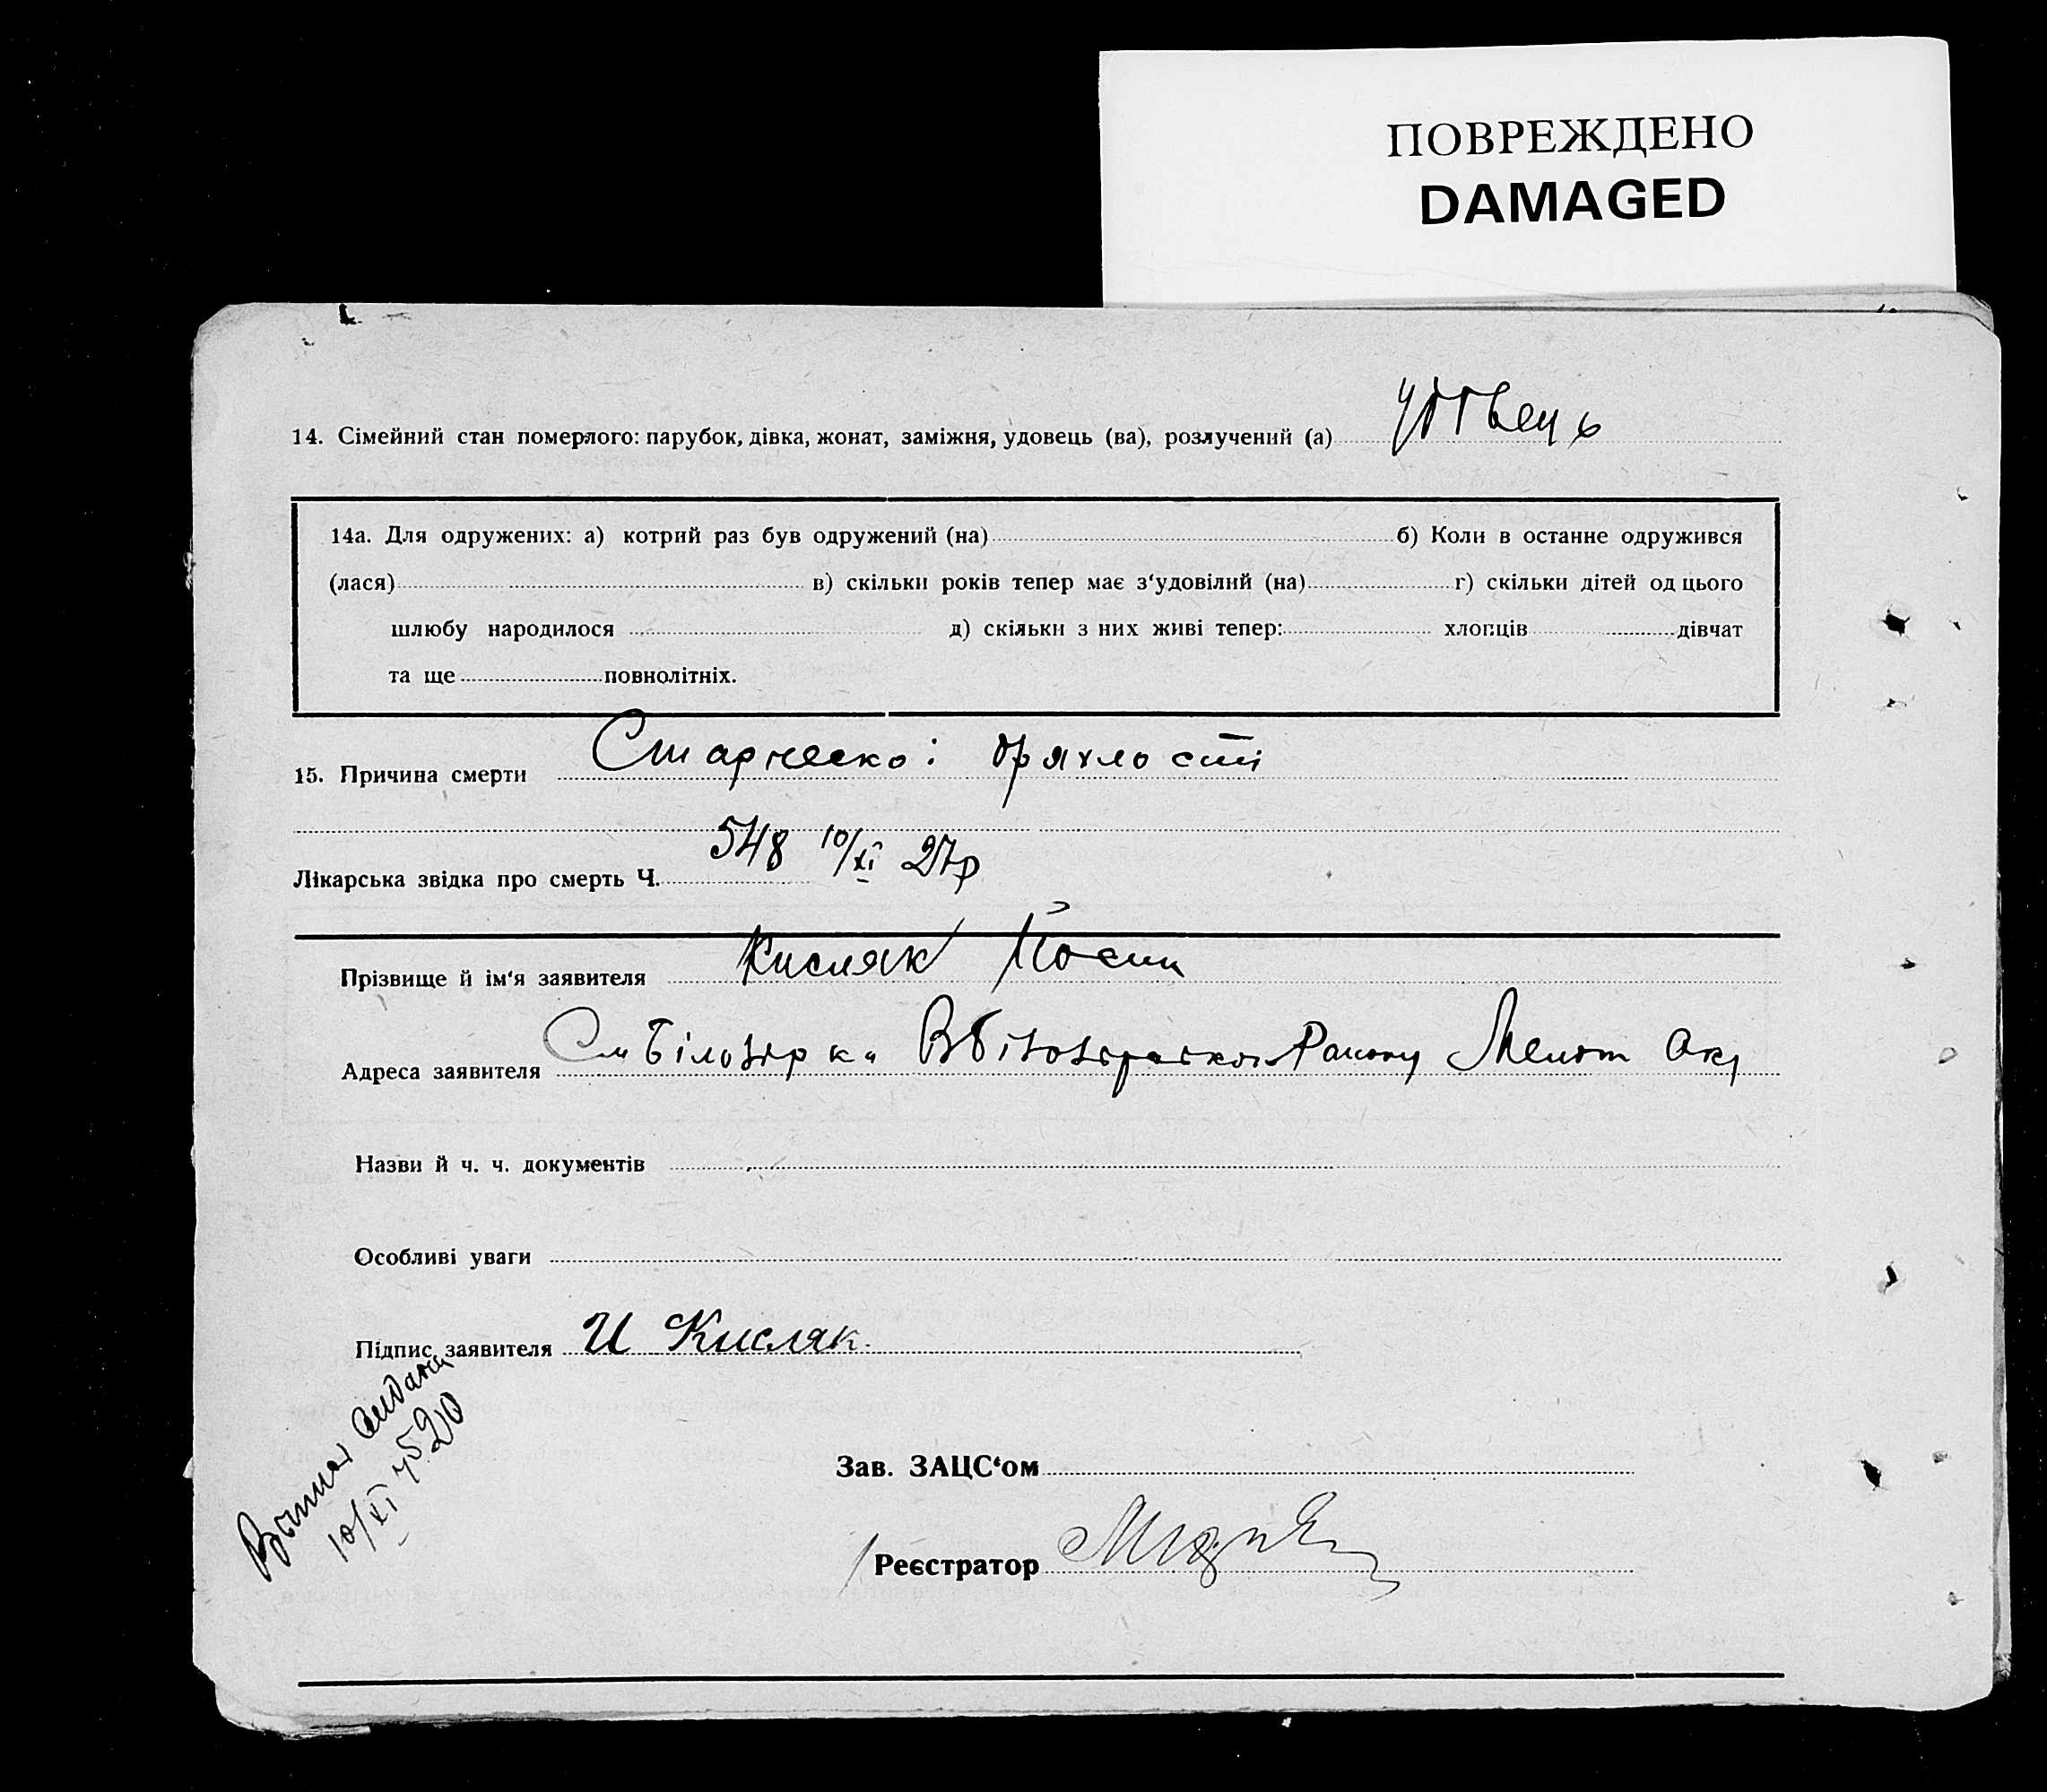 ПОВРЕЖДЕНО
DAMAGED
14. Сімейний стан померлого: парубок, дівка, жонат, заміжня, удовець (ва), розлучений (а)
14а. Для одружених: а) котрий раз був одружений (на) б) Коли в останне одружився
(лася) в) скільки років тепер має з‘удовілий (на) г) скільки дітей од цього
шлюбу народилося д) скільки з них живі тепер: хлопців дівчат
та ще повнолітніх.
15. Причина смерти Старческоі дряхлости
548 10/XI 27р
Лікарська звідка про смерть Ч.
Прізвище й ім‘я заявителя Кисляк Йосип
Адреса заявителя Білозірка Району Меліт Окр
Назви й ч. ч. документів
Особливі уваги
Підпис заявителя И Кисляк.
10/XI 7520
Зав. ЗАЦС‘ом
Реєстратор